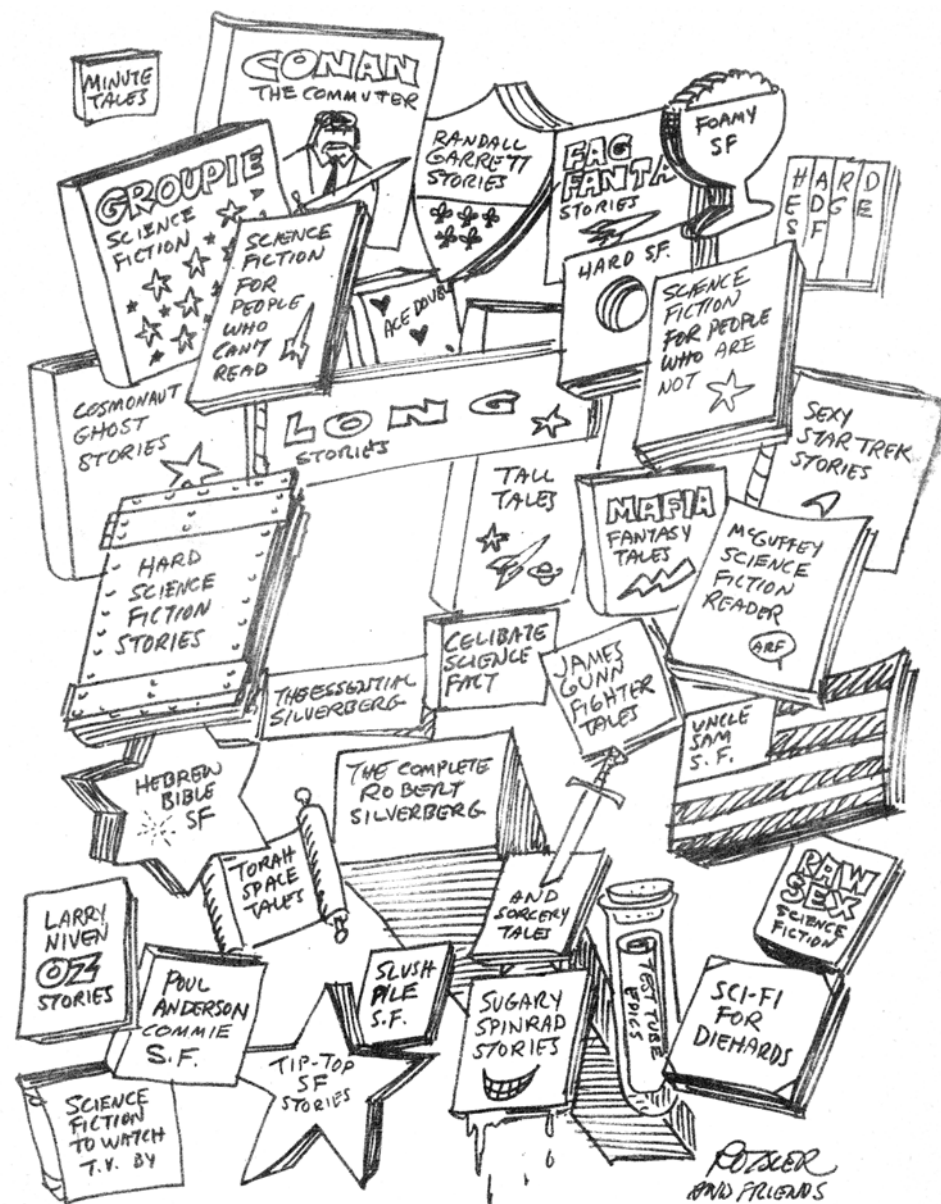 MINUTE
TALES
CONAN
THE COMMUTER
RANDALL
GARRETT
STORIES
FAG
FANTA
STORIES
FOAMY
SF
HARD
EDGE
SF
GROUPIE
SCIENCE
FICTION
SCIENCE
FICTION
FOR
PEOPLE
WHO
CAN'T
READ
ACE DOUB
HARD SF.
SCIENCE
FICTION
FOR PEOPLE
WHO ARE
NOT
COSMONAUT
GHOST
STORIES
LONG
STORIES
SEXY
STAR TREK
STORIES
TALL
TALES
MAFIA
FANTASY
TALES
McGUFFEY
SCIENCE
FICTION
READER
ARF
HARD
SCIENCE
FICTION
STORIES
THE ESSENTIAL
SILVERBERG
CELIBATE
SCIENCE
FACT
JAMES
GUNN
FIGHTER
TALES
UNCLE
SAM
S.F.
HEBREW
BIBLE
SF
THE COMPLETE
ROBERT
SILVERBERG
TORAH
SPACE
TALES
AND
SORCERY
TALES
RAW
SEX
SCIENCE
FICTION
LARRY
NIVEN
OZ
STORIES
POUL
ANDERSON
COMMIE
S.F.
SLUSH
PILE
S.F.
SUGARY
SPINRAD
STORIES
TEST TUBE
EPICS
SCI-FI
FOR
DIEHARDS
TIP-TOP
SF
STORIES
SCIENCE
FICTION
TO WATCH
T.V. BY
ROTSLER
AND FRIENDS